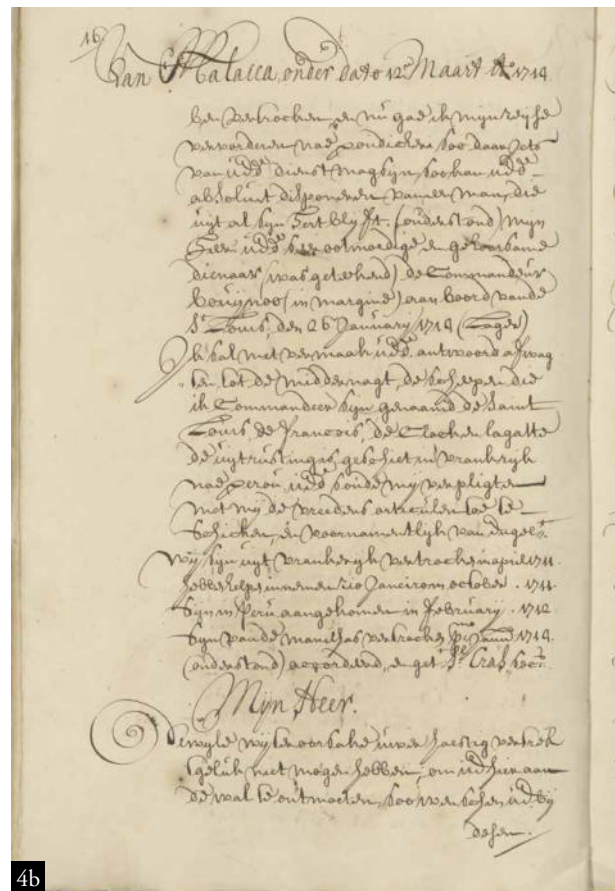 16
Van Malacca, onder dato 12:e Maart A:o 1714
ben vertrocken, en nu gae ik mijn reijse
vervorderen naer pondicheri soo daar iets
van uEd: dienst mag sijn, soo kan uEd:
absolut disponeren van een man, die
uijt al sijn hert blijft. (onderstond) Mijn
Heer uEd: seer ootmoedige en gehoorsame
dienaar (was getekend) de Commandeur
(in margine) aan boord vande
S:t Louis, den 26 Januarij 1714 (Lager)
Ik sal met vermaak uEd: antwoord afwag
ten tot de middernagt, de scheepen die
ik Commandeer sijn genaamd de Saint
Louis, de François, de
de uijtrusting is geschiet in vrankrijk
nae perou, uEd: soude mij verpligten
met mij de vreedens articulen toe te
schicken, en voornamentlijk van
Wij sijn uijt vrankrijk vertrocken in april 1711
hebben helpen innemen rio Janeiro in october . 1711
Sijn in Peru aangekomen in February . 1712
Sijn van de manilhas vertrocken p:mo Januarij 1714
(onderstond) accordeerd, en get:
Mijn Heer.
Dewijle wij ter oorsake uwer haestig vertrek
't geluk niet mogen hebben, om uEd: hier aan
de wal te ontmoeten, soo wenschen uEd: bij
desen
4b